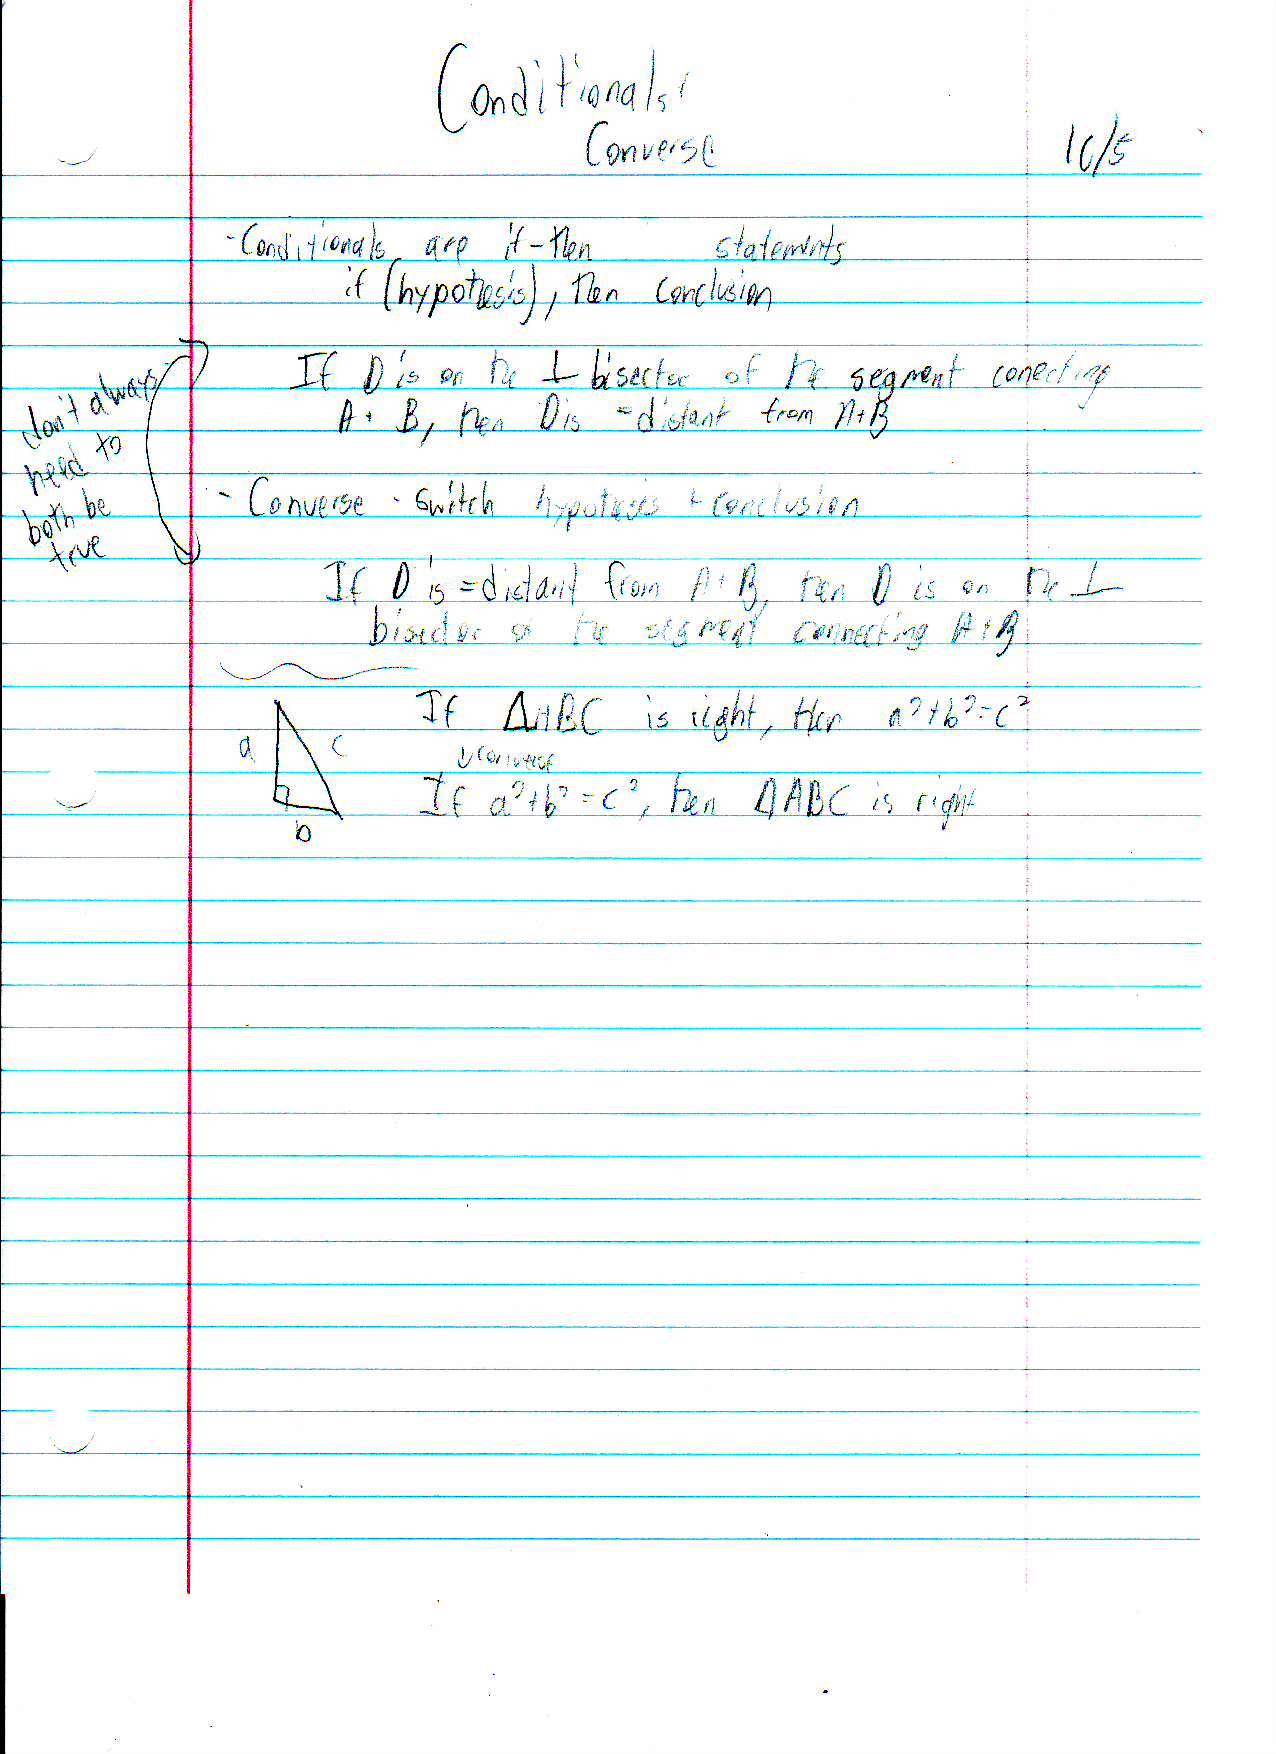 Conditionals:
Converse
10/5
- Conditionals are if-then statements
if (hypothesis), then conclusion
If D is on the ⊥ bisector of the segment conecting
A + B, then D is =distant from A+B
don't always
need to
both be
true
- Converse - switch hypothesis + conclusion
If D is =distant from A+B, then D is on the ⊥
bisector of the segment connecting A+B
If ΔABC is right, then a²+b²=c²
converse
If a²+b²=c², then ΔABC is right
a
c
b